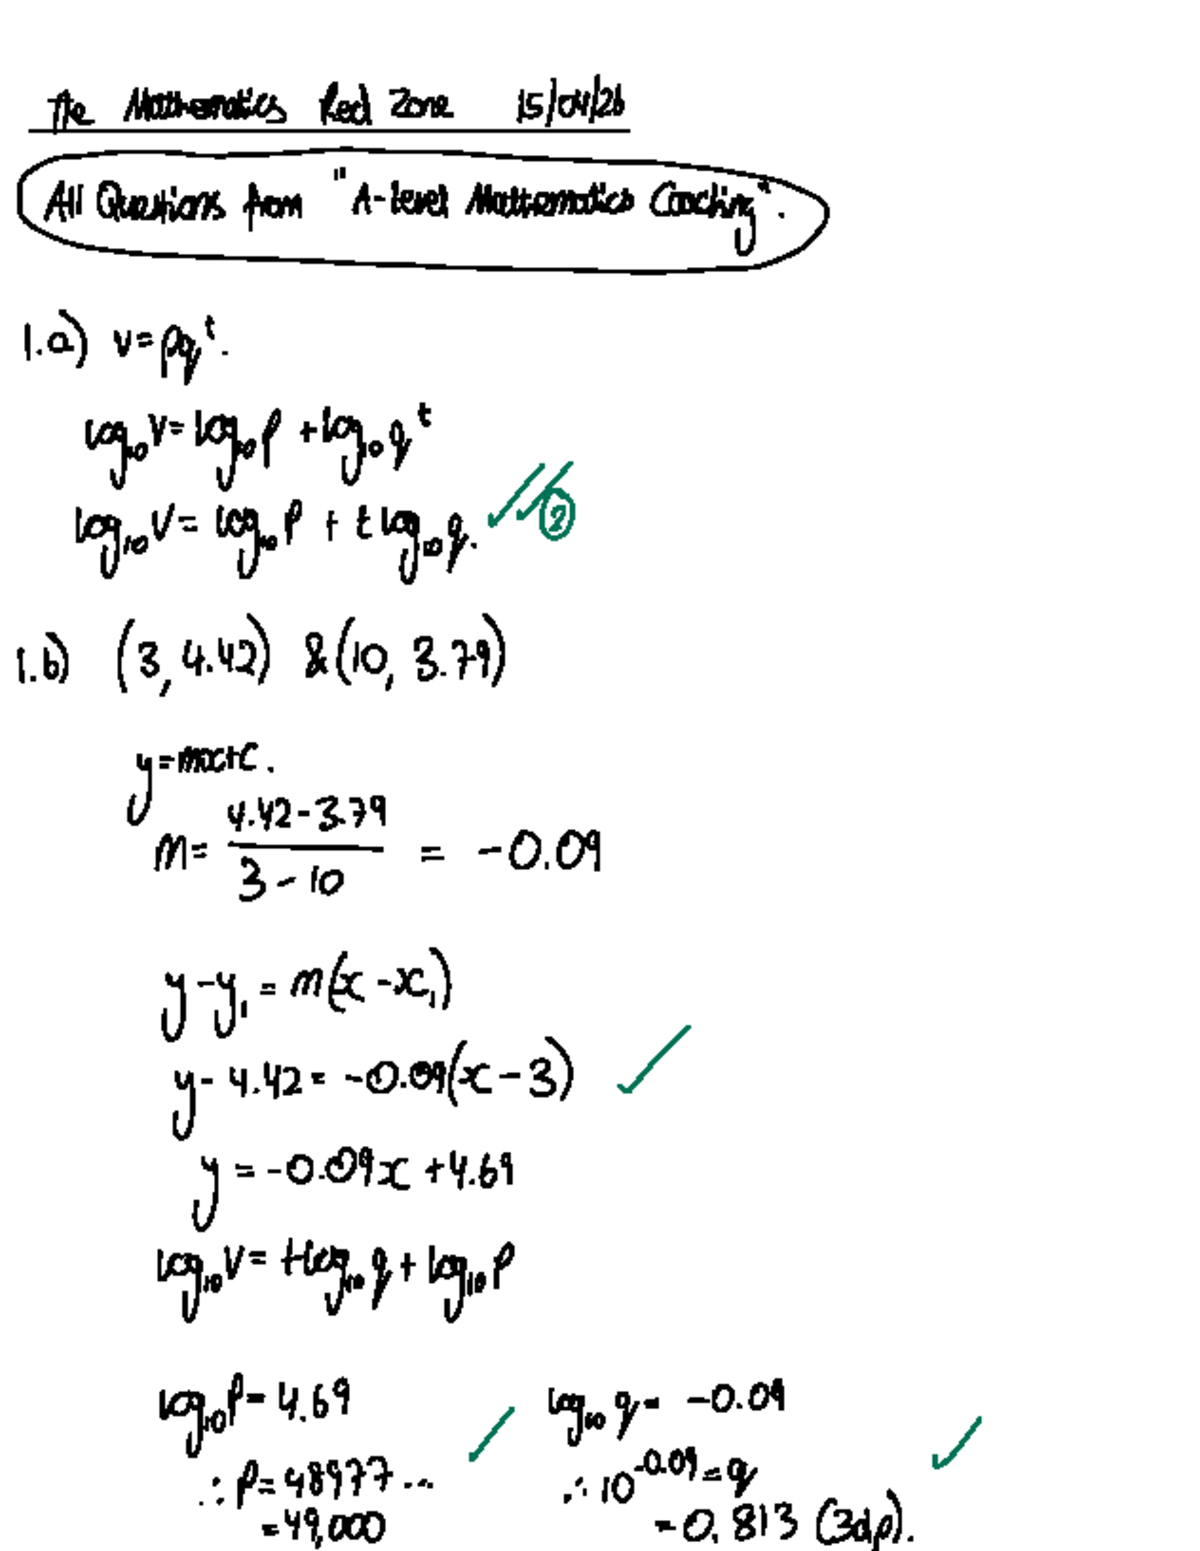 The Mathematics Red Zone 15/04/26
All Questions from "A-level Mathematics Coaching".
1.a) v = pqᵗ.
log₁₀V = log₁₀p + log₁₀qᵗ
log₁₀V = log₁₀p + t log₁₀q. ✓✓ ②
1.b) (3, 4.42) & (10, 3.79)
y = mx+c.
m = (4.42 - 3.79)/(3 - 10) = -0.09
y - y₁ = m(x - x₁)
y - 4.42 = -0.09(x - 3) ✓
y = -0.09x + 4.69
log₁₀V = t log₁₀q + log₁₀p
log₁₀p = 4.69 ✓ log₁₀q = -0.09 ✓
∴ p = 48977... ∴ 10^-0.09 = q
= 49,000 = 0.813 (3dp).